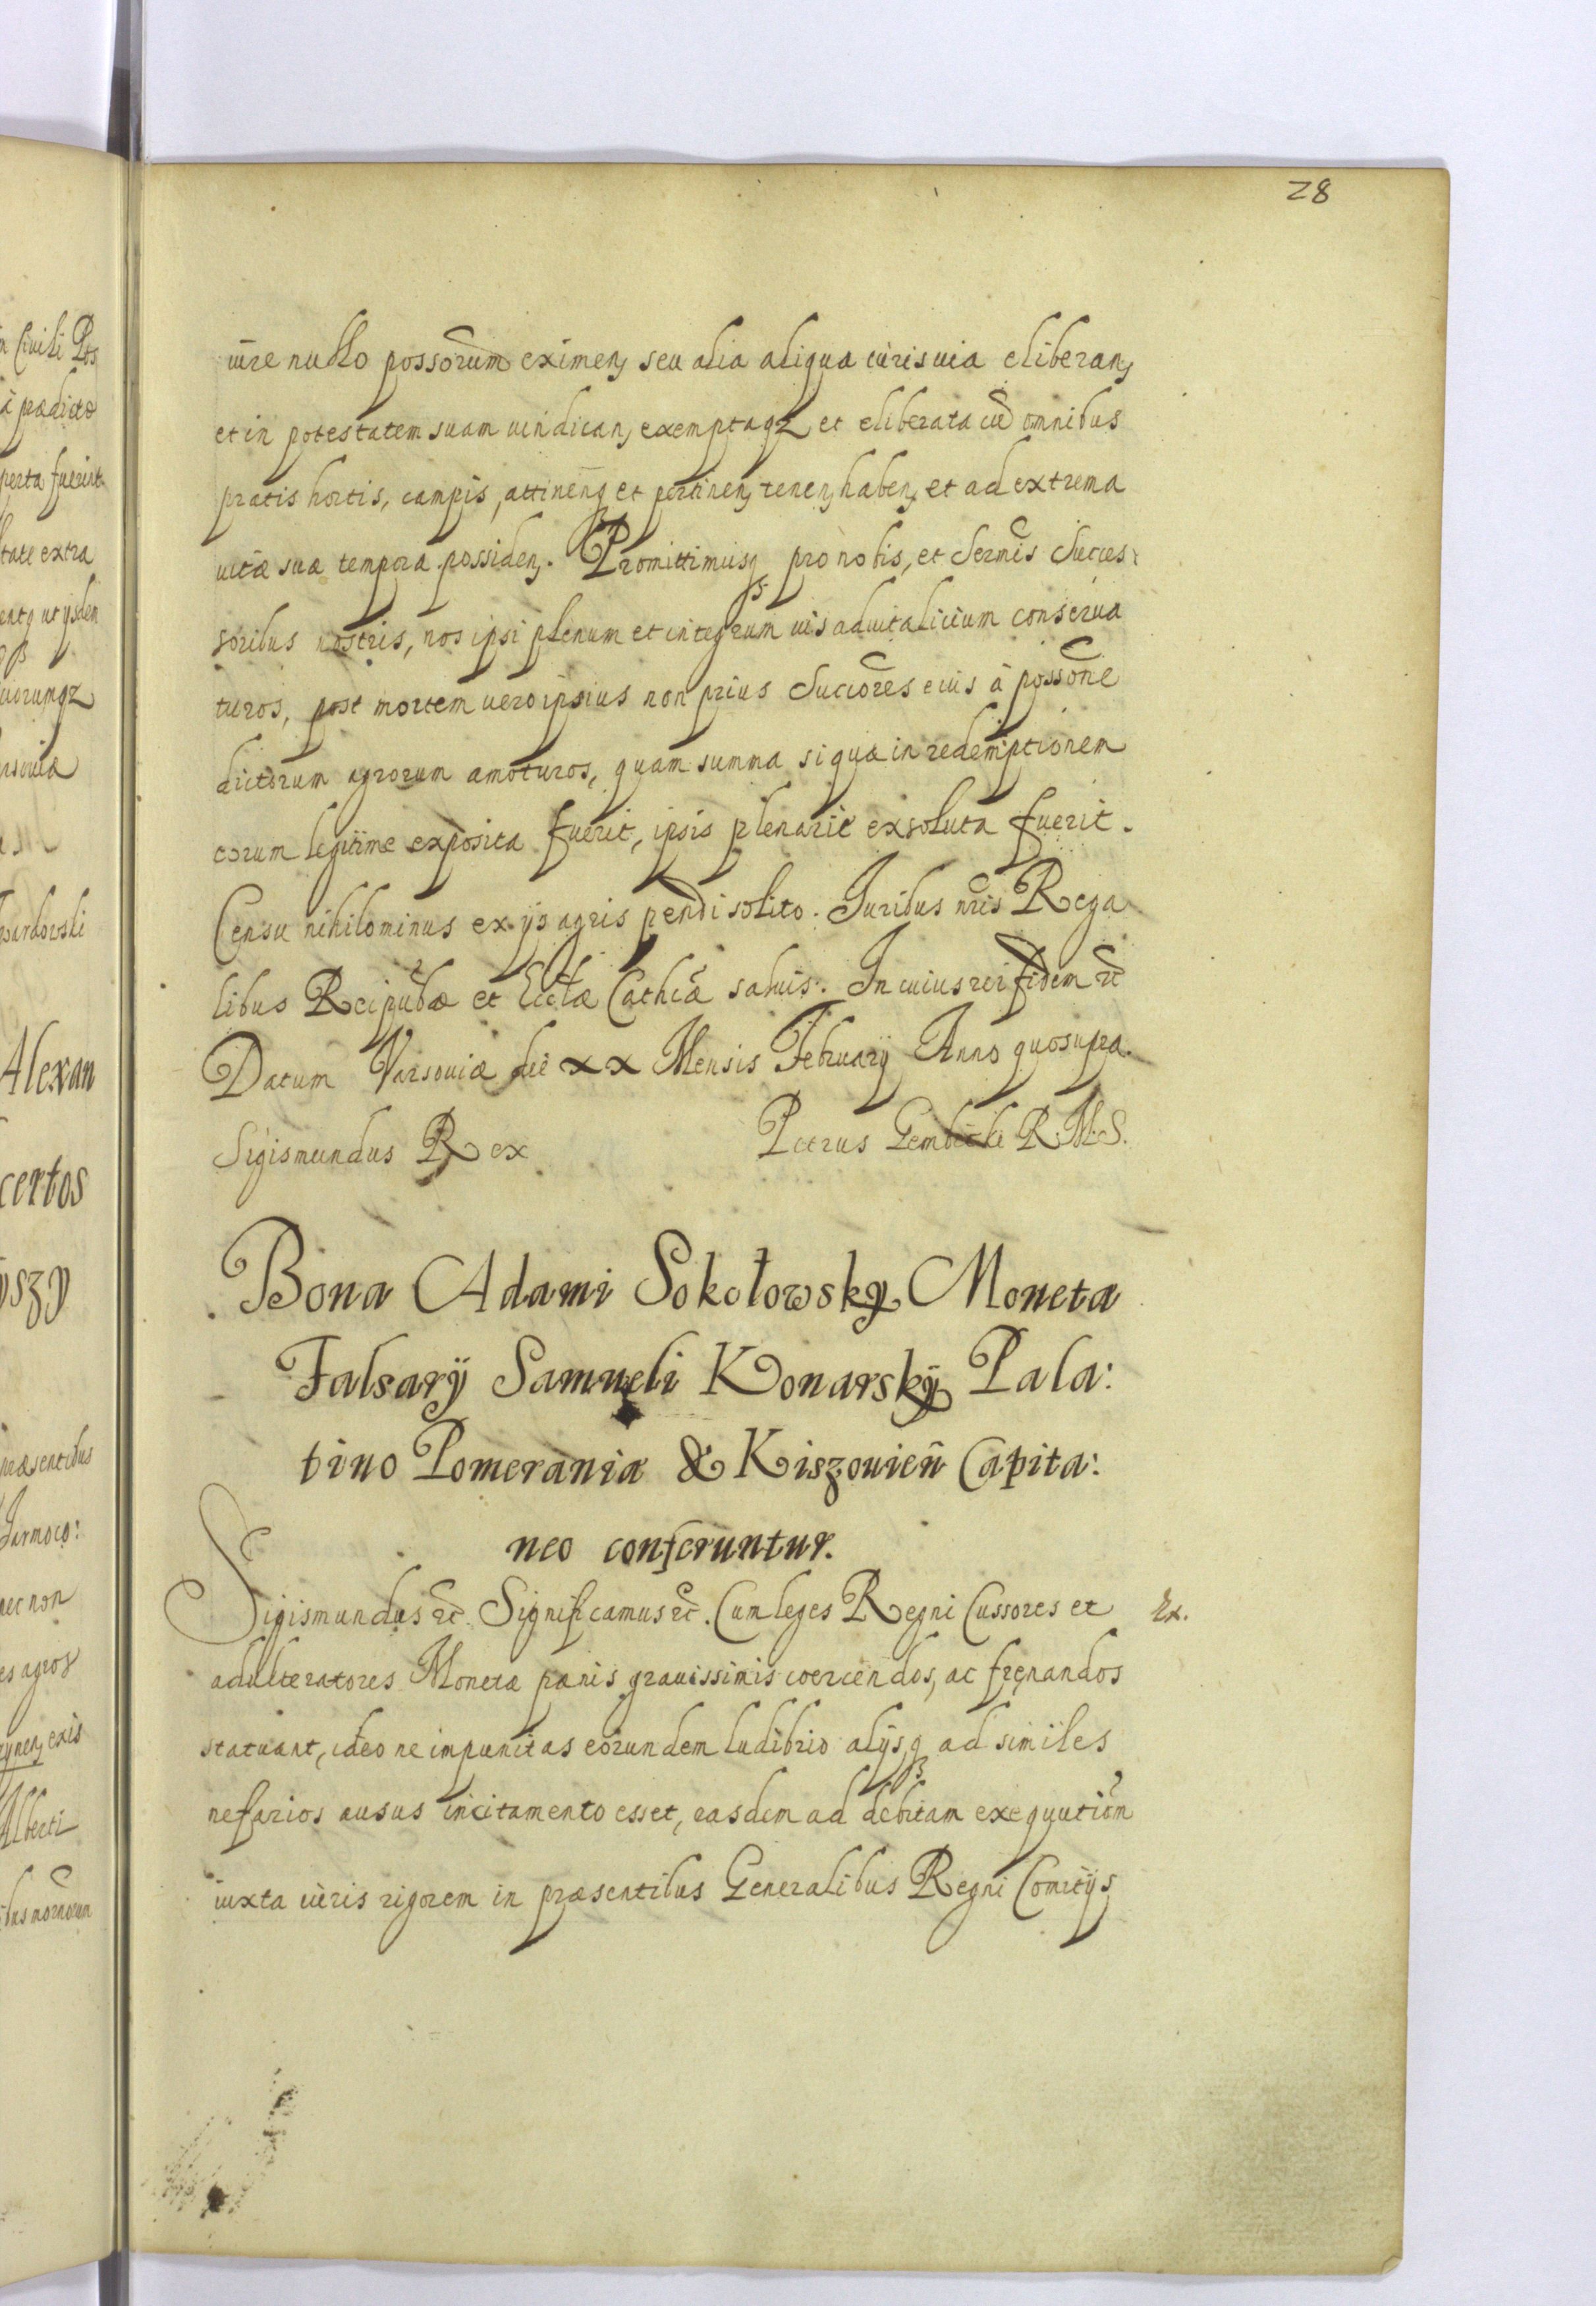 28
iure nullo possorum eximen, seu alia aliqua iuris uia eliberan,
et in potestatem suam uindican, exemptaqz et eliberata cum omnibus
pratis hortis, campis, attinen, et pertinen, tenen, haben, et ad extrema
uitæ suæ tempora possiden. Promittimusqz pro nobis, et Sermis Succes:
soribus nostris, nos ipsi plenum et integrum ius aduitalitium conserua
turos, post mortem uero ipsius non prius Succores eius à possone
dictorum agrorum amoturos, quam summa si qua in redemptionem
eorum legitime exposita fuerit, ipsis plenariè exsoluta fuerit.
Censu nihilominus ex ijs agris pendi solito. Juribus nris Rega
libus Reipubæ et Ecclæ Cathcæ saluis. In cuius rei fidem etc
Datum Varsouiæ die XX Mensis February Anno quo supra.
Sigismundus Rex Petrus Gembicki R.M.S.
Bona Adami Sokołowsky Moneta
Falsarÿ Samueli Konarskÿ Pala:
tino Pomeraniæ & Kiszouien Capita:
neo conferuntur.
Sigismundus etc. Significamus etc. Cum leges Regni Cussores et
Ex.
adulteratores Monetæ pænis grauissimis coercendos, ac frenandos
statuant, ideo ne impunitas eorundem ludibrio alijsqz ad similes
nefarios ausus incitamento esset, easdem ad debitam exequution
iuxta iuris rigorem in præsentibus Generalibus Regni Comitijs